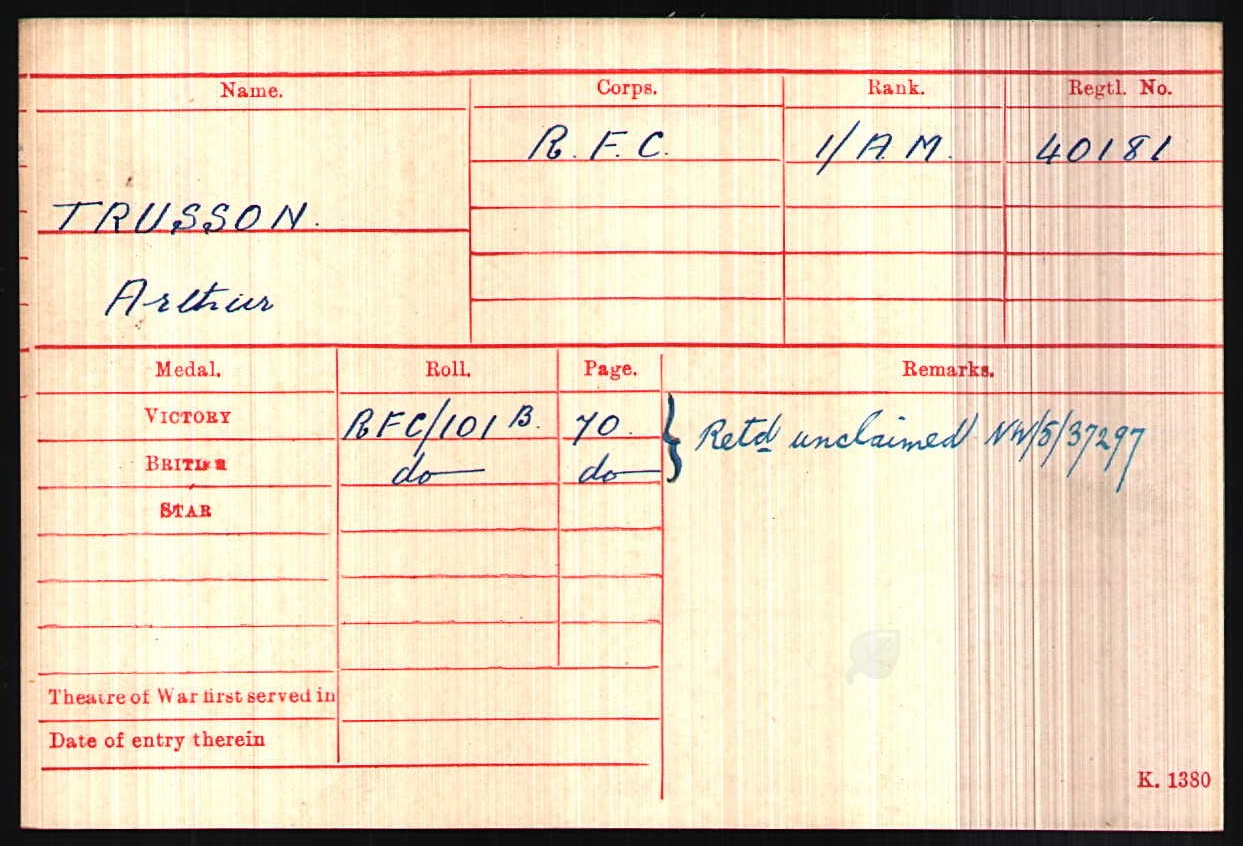 Name. Corps. Rank. Regtl. No.
R.F.C. 1/A.M. 40181
TRUSSON.
Arthur
Medal. Roll. Page. Remarks.
VICTORY RFC/101 B. 70. } Retd unclaimed NW/5/37297
BRITISH do do
STAR
Theatre of War first served in
Date of entry therein
K. 1380